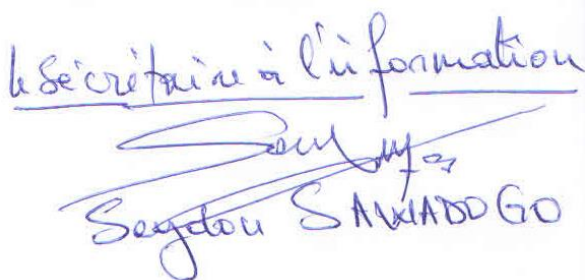 le Sécrétaire à l'information
Seydou SAWADOGO